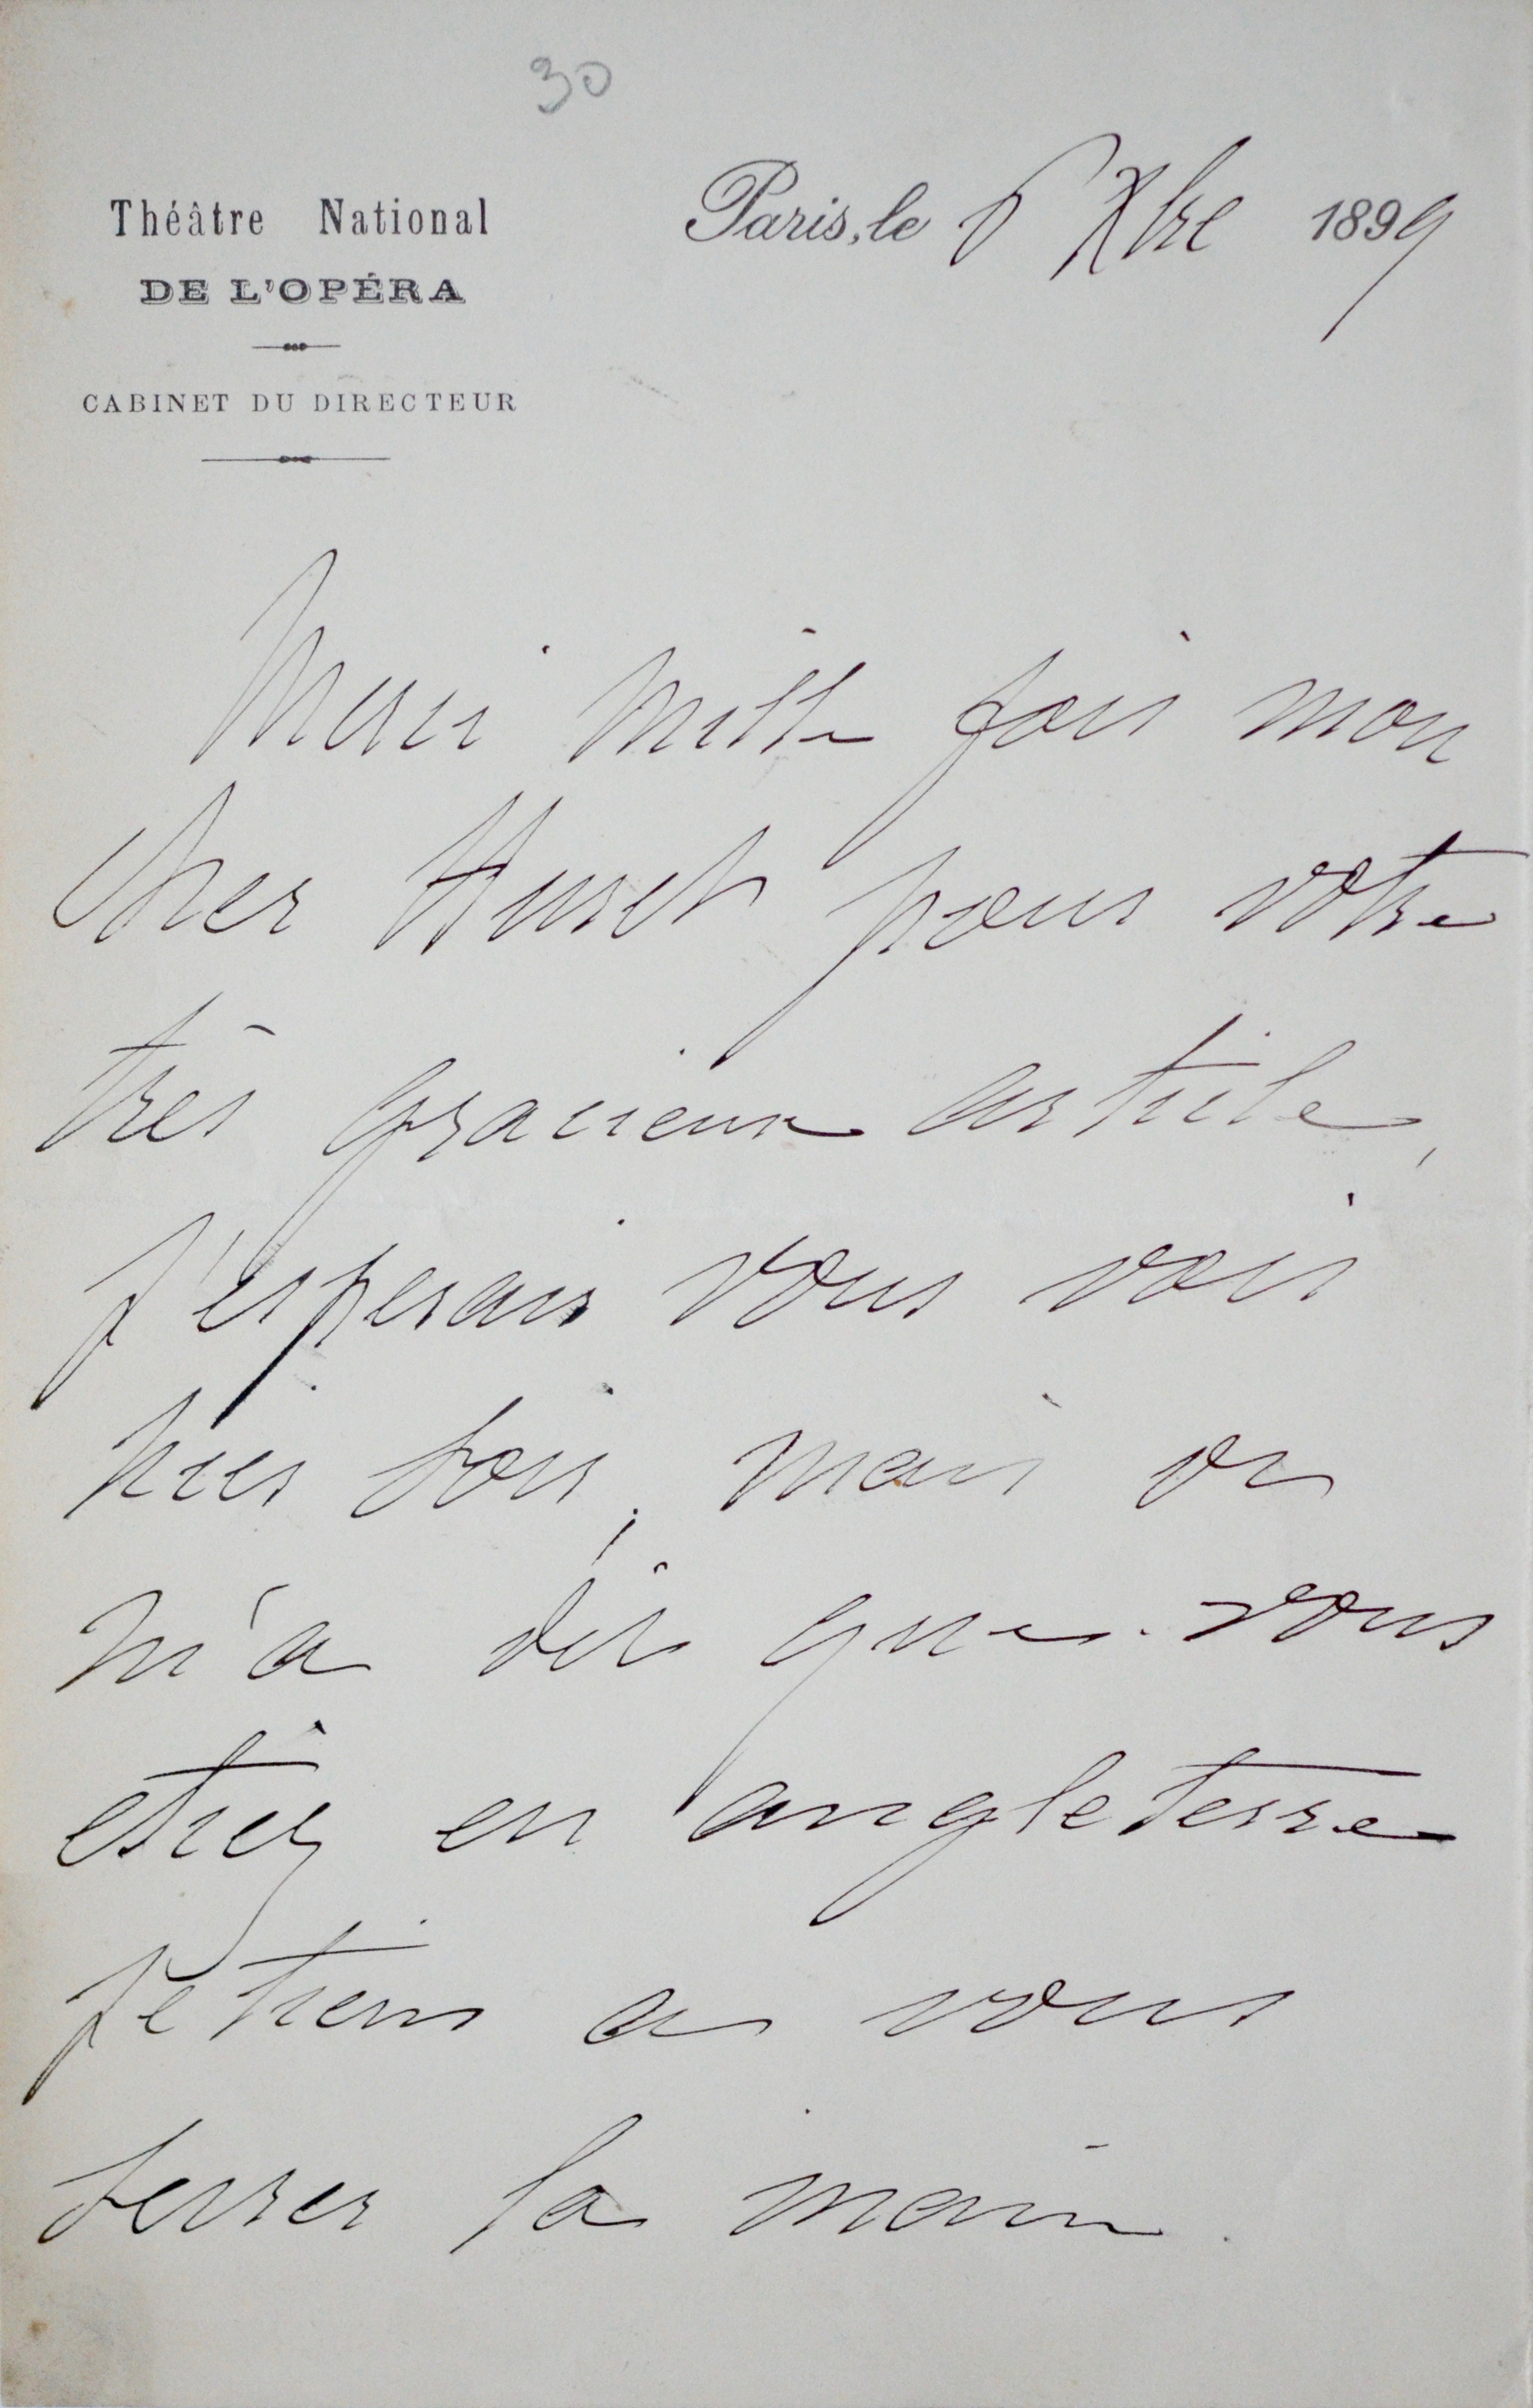 30
Théâtre National
DE L'OPÉRA
CABINET DU DIRECTEUR
Paris, le 6 Xbre 1899
Merci mille fois mon
cher Huret pour votre
très gracieux article,
J'esperais vous voir
hier soir, mais on
m'a dit que vous
etiez en angleterre
Je tiens a vous
serrer la main.